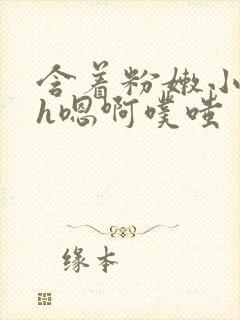 含着粉嫩小
h嗯啊噗嗤
缘本